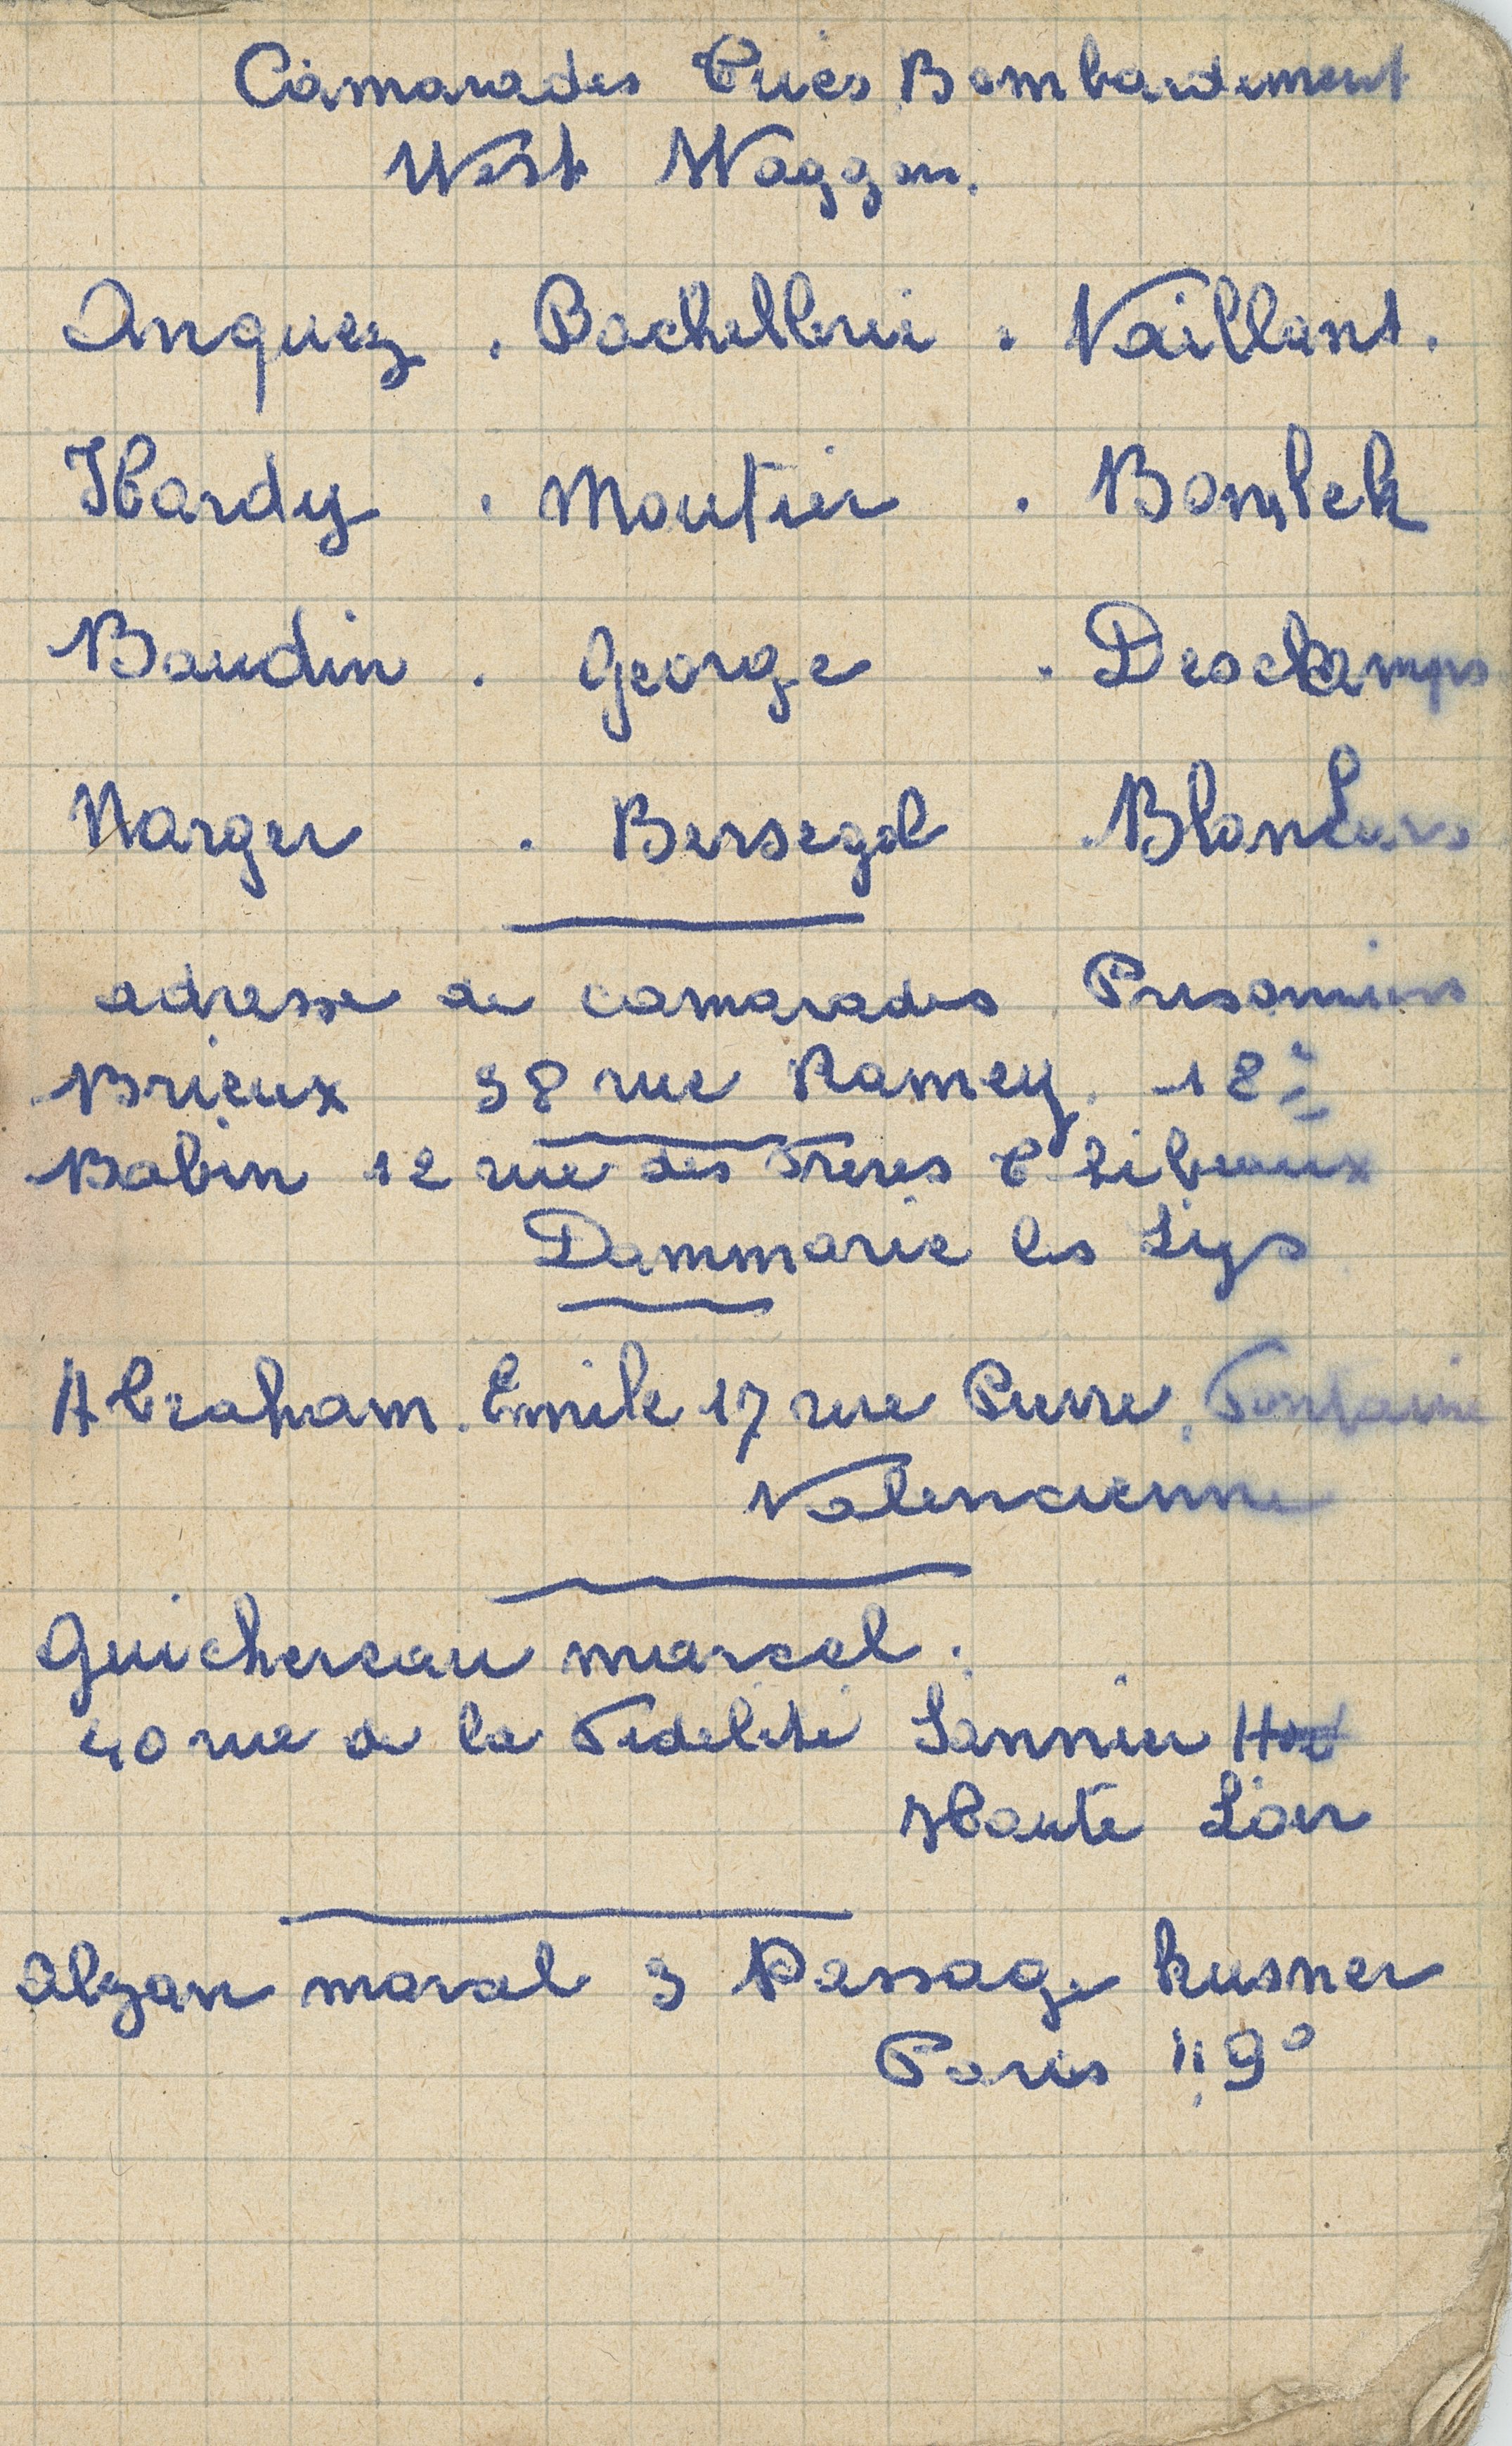 Camarades Tués Bombardement
West Waggon.
Anquez . Bachellerie . Vaillant.
Hardy . Moutier . Bomblek
Baudin . George . Deschamps
Narger . Bersegol .
adresse de camarades Prisonniers
Brieux 38 rue Ramey. 18è
Babin 12 rue des Frères Thibeaux
Dammarie les Lys
Abraham. Emile 17 rue Pierre Fontaine
Valencienne
Guichereau marcel.
40 rue de la Fidelité Sannier
Haute Loir
Alzan marcel 3 Passage kusner
Paris 19°